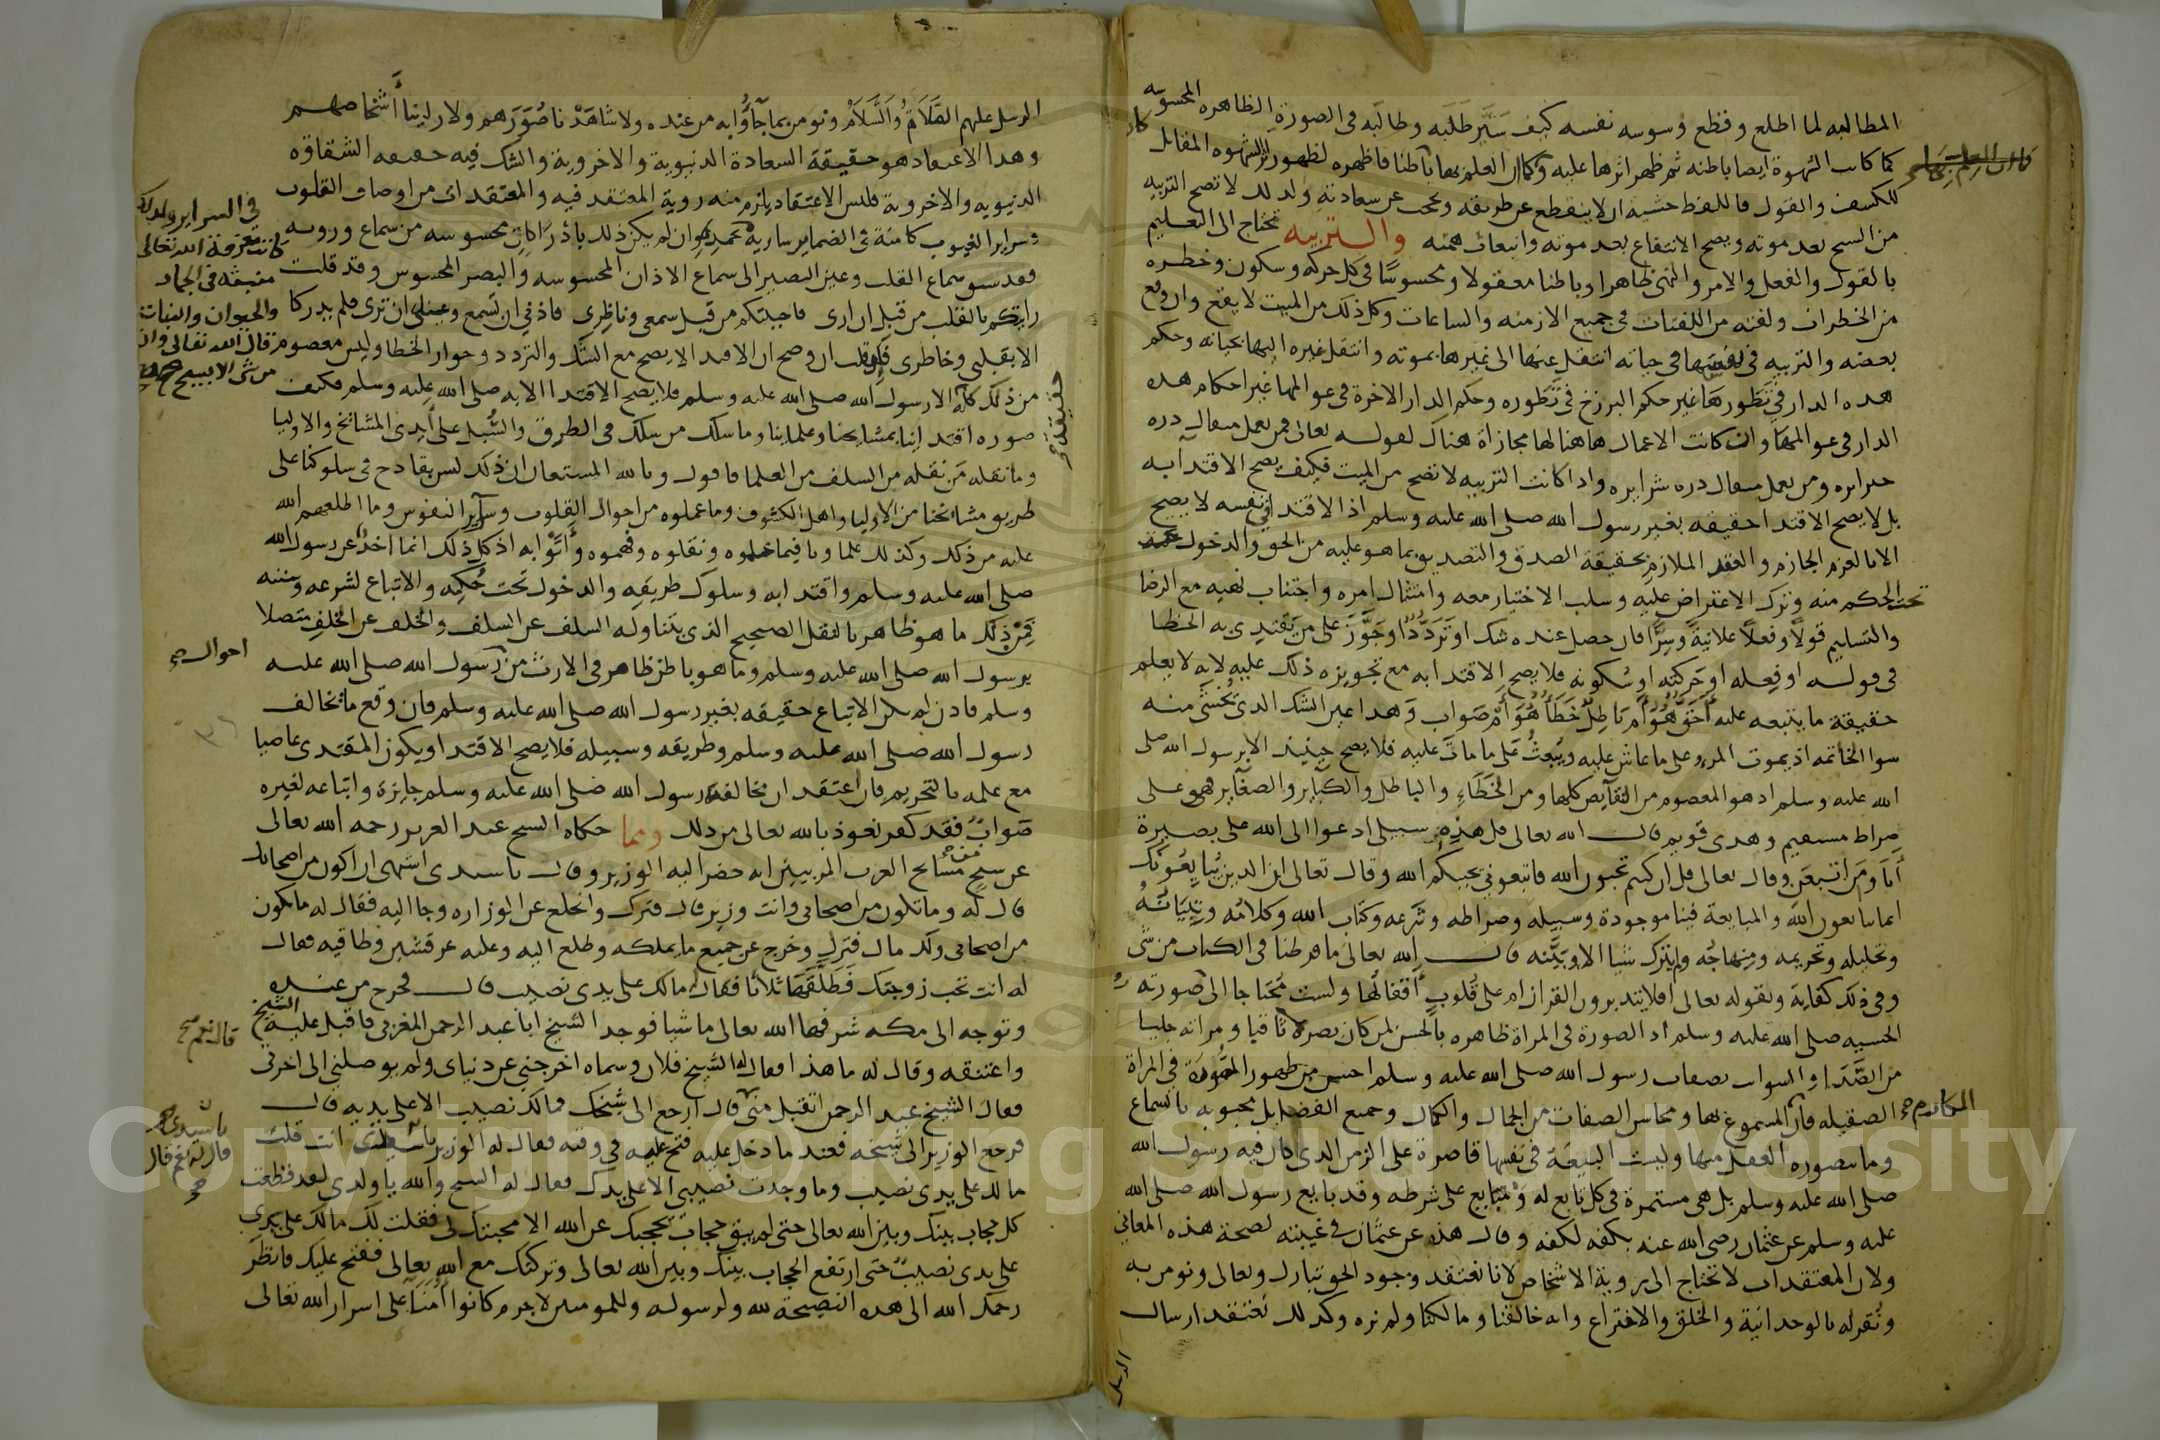 المطالبه لما اطلع وقطع وسوسه نفسه كيف ستر طلبه وطالبه فى الصورة الظاهره المحسوسه
كما كانت الشهوة ايضا باطنه ثم ظهر اثرها عليه وكان العلم بها باطنا فاظهره لظهور الشهوه المقابل
للكسف والقول باللفظ خشيه ان لا ينقطع عن طريقه ويحجب عن سعادته ولذلك لا تصح التربيه
من الشيخ بعد موته ويصح الانتفاع بعد موته وانبعاث همته والتربيه تحتاج الى التعليم
بالقول والفعل والامر والنهى ظاهرا وباطنا معقولا ومحسوسا فى كل حركه وسكون وخطره
من الخطرات ولفته من اللفتات فى جميع الازمنه والساعات وكل ذلك من الميت لا يقع وان وقع
بعضه والتربيه فى نفسها فى حياته انتقل عنها الى غيرها بموته وانتقل غيره اليها بحياته وحكم
هذه الدار فى تطورها غير حكم البرزخ فى تطوره وحكم الدار الاخرة فى عوالمها غير احكام هذه
الدار فى عوالمها وان كانت الاعمال هاهنا لها مجازاة هناك لقوله تعالى فمن يعمل مثقال ذره
خيرا يره ومن يعمل مثقال ذره شرا يره واذا كانت التربيه لا تصح من الميت فكيف يصح الاقتدا به
بل لا يصح الاقتدا حقيقه بغير رسول الله صلى الله عليه وسلم اذ الاقتدا فى نفسه لا يصح
الا بالعزم الجازم والعقد الملازم بحقيقة الصدق والتصديق بما هو عليه من الحق والدخول
تحت الحكم منه وترك الاعتراض عليه وسلب الاختيار معه وامتثال امره واجتناب نهيه مع الرضا
والتسليم قولا وفعلا علانية وسرا فان حصل عنده شك او تردد او جوز على من يقتدى به الخطا
فى قوله او فعله او حركته او سكونه فلا يصح الاقتدا به مع تجويزه ذلك عليه لانه لا يعلم
حقيقة ما يتبعه عليه أحق هو أم باطل خطأ هو أم صواب وهذا عين الشك الذى يخشى منه
سوا الخاتمه اذ يموت المرو على ما عاش عليه ويبعث على ما مات عليه فلا يصح حينيذ الا برسول الله صلى
الله عليه وسلم اذ هو المعصوم من النقايص كلها ومن الخطاء والباطل والكباير والصغاير فهو على
صراط مستقيم وهدى قويم قال الله تعالى قل هذه سبيلى ادعوا الى الله على بصيرة
أنا ومن اتبعنى وقال تعالى قل ان كنتم تحبون الله فاتبعونى يحببكم الله وقال تعالى ان الذين يبايعونك
انما يبايعون الله والمبايعة فينا موجودة وسبيله وصراطه وشرعه وكتاب الله وكلامه وتبيانه
وتحليله وتحريمه ومنهاجه ولم يترك شيا الا وبينه قال الله تعالى ما فرطنا فى الكتاب من شى
وفى ذلك كفاية ولقوله تعالى افلا يتدبرون القران ام على قلوب أقفالها ولست محتاجا الى صورته
الحسيه صلى الله عليه وسلم اذ الصورة فى المراة ظاهره بالحس لمن كان بصره ثاقبا ومراته جليا
من الصدا والسواد بصفات رسول الله صلى الله عليه وسلم احسن من ظهور الصورة فى المراة
الصقيله فان المسموع بها ومحاسن الصفات من الجمال والكمال وجميع الفضايل محبوبه بالسماع
وما يتصوره العقل منها وليست البيعة فى نفسها قاصرة على الزمن الذى كان فيه رسول الله
صلى الله عليه وسلم بل هى مستمرة فى كل تابع له ومتابع على شرطه وقد بايع رسول الله صلى الله
عليه وسلم عن عثمان رضى الله عنه بكفه لكفه وقال هذه عن عثمان فى غيبته لصحة هذه المعانى
ولان المعتقدات لا تحتاج الى روية الاشخاص لانا نعتقد وجود الحق تبارك وتعالى ونومن به
ونقر له بالوحدانية والخلق والاختراع وانه خالقنا ومالكنا ولم نره وكذلك نعتقد ارسال
الرسل
المكارم صح
الرسل عليهم الصلاة والسلام ونومن بما جآؤا به من عنده ولا شاهدنا صورهم ولا راينا أشخاصهم
وهذا الاعتقاد هو حقيقة السعادة الدنيوية والاخروية والشك فيه حقيقه الشقاوه
الدنيويه والاخروية فليس الاعتقاد يلزم منه روية المعتقد فيه والمعتقدات من اوصاف القلوب
وسراير الغيوب كامنة فى الضماير سارية وان لم يكن ذلك باذراك محسوسه من سماع ورويه
فقد سبق سماع القلب وعين البصير الى سماع الاذان المحسوسه والبصر المحسوس وقد قلت
رايتكم بالقلب من قبل ان ارى فاجبتكم من قبل سمعى وناظرى فاذنى ان تسمع وعينى ان ترى فلم يدركا
الا بقلبى وخاطرى فان صح ان الاقتدا لا يصح مع الشك والتردد وجواز الخطا وليس معصوم
من ذلك كله الا رسول الله صلى الله عليه وسلم فلا يصح الاقتدا الا به صلى الله عليه وسلم فكيف
صوره اقتداينا بمشايخنا وعلماينا وما سلك من سلك فى الطرق والسبل على أيدى المشايخ والاوليا
وما نقله من نقله من السلف من العلما فاقول وبالله المستعان ان ذلك ليس بقادح فى سلوكنا على
طريق مشايخنا من الاوليا واهل الكشوف وما عملوه من احوال القلوب وسرآير النفوس وما اطلعهم الله
عليه من ذلك وكذلك علماونا فيما علموه ونقلوه وفهموه وأتوا به اذ كل ذلك انما اخذ عن رسول الله
صلى الله عليه وسلم واقتدا به وسلوك طريقه والدخول تحت حكمه والاتباع لشرعه وسننه
فمن ذلك ما هو ظاهر بالنقل الصحيح الذى يتناوله السلف عن السلف والخلف عن الخلف متصلا
برسول الله صلى الله عليه وسلم وما هو باطن ظاهر فى الارث من رسول الله صلى الله عليه
وسلم فاذن لم يكن الاتباع حقيقه بغير رسول الله صلى الله عليه وسلم فان وقع ما يخالف
رسول الله صلى الله عليه وسلم وطريقه وسبيله فلا يصح الاقتدا ويكون المقتدى عاصيا
مع علمه بالتحريم فان اعتقد ان مخالفة رسول الله صلى الله عليه وسلم جايزة واتباعه لغيره
صواب فقد كفر نعوذ بالله تعالى من ذلك ومما حكاه الشيخ عبد العزيز رحمه الله تعالى
عن شيخ من مشايخ العرب المربيين انه حضر اليه الوزير وقال يا سيدى اشتهى ان اكون من اصحابك
قال له وما تكون من اصحابى وانت وزير قال فترك وانخلع عن الوزاره وجا اليه فقال له ما تكون
من اصحابى ولك مال فترك وخرج عن جميع ما يملكه وطلع اليه وعليه عرقشين وطاقيه فقال
له انت تحب زوجتك فطلقها ثلاثا فقال ما لك على يدى نصيب قال فخرج من عنده
وتوجه الى مكه شرفها الله تعالى ماشيا فوجد الشيخ ابا عبد الرحمن المغربى فاقبل عليه الشيخ
واعتنقه وقال له ما هذا فقال له الشيخ فلان وسماه اخرجنى عن دنياى ولم يوصلنى الى اخرتى
فقال الشيخ عبد الرحمن اتقبل منى قال ارجع الى شيخك فما لك نصيب الا على يديه قال
فرجع الوزير الى شيخه فعند ما دخل عليه فتح عليه فى وقته فقال له الوزير انت قلت
ما لك على يدى نصيب وما وجدت نصيبى الا على يدك فقال له الشيخ والله يا ولدى لقد قطعت
كل حجاب بينك وبين الله تعالى حتى لم يبق حجاب يحجبك عن الله الا محبتك لى فقلت لك ما لك على يدى
على يدى نصيب حتى ارتفع الحجاب بينك وبين الله تعالى وتركتك مع الله تعالى ففتح عليك فانظر
رحمك الله الى هذه النصيحة لله ولرسوله وللمومنين لا جرم كانوا أمنا على اسرار الله تعالى
فى السراير ولذلك
كانت معرفة الله تعالى
منبثه فى الجماد
والحيوان والنبات
قال الله تعالى وان
من شى الا يسبح بحمده
حقيقة صح
احوال صح
قال نعم صح
يا سيدى
قال له نعم قال
صح
Copyright © King Saud University